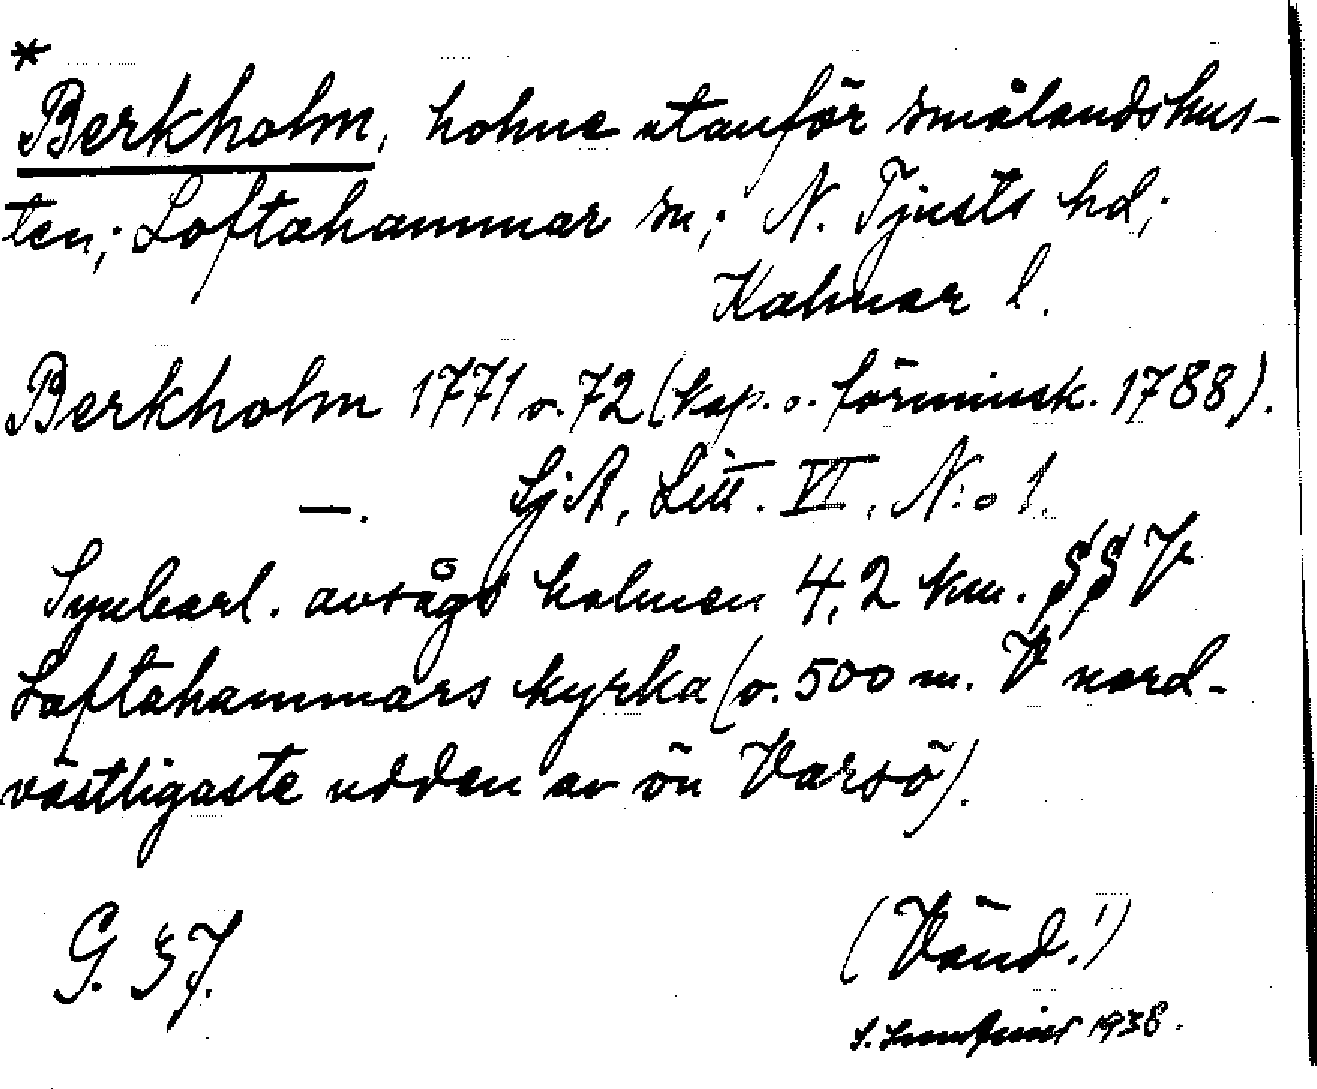 *
Berkholm, holme utanför smålandskus-
ten; Loftahammar sn; N. Tjusts hd;
Kalmar l.
Berkholm 1771 o. 72 (kop. o. förminsk. 1788).
—. SjA, Litt. VI, N:o 1.
Synbarl. avsågs holmen 4,2 km. SSV
Loftahammars kyrka (o. 500 m. V nord-
västligaste udden av ön Varsö).
G. 37.
(Vänd!)
1938.